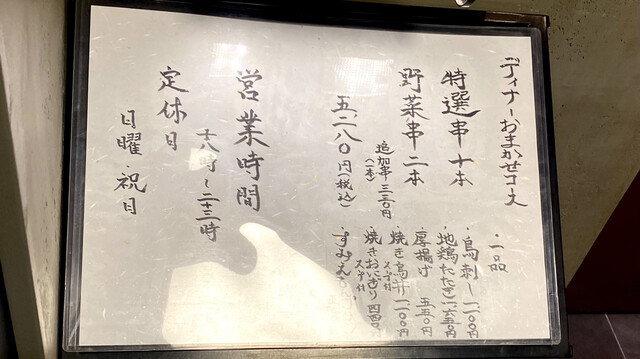 ディナーおまかせコース
特選串十本
野菜串二本
追加串三三〇円
(一本)
五,二八〇円(税込)
・一品
・鳥刺し 一一〇〇円
・地鶏たたき 一六五〇円
・厚揚げ 五五〇円
・焼き鳥丼 一一〇〇円
スープ付
・焼きおにぎり 四四〇円
スープ付
営業時間
十八時〜二十三時
定休日
日曜・祝日